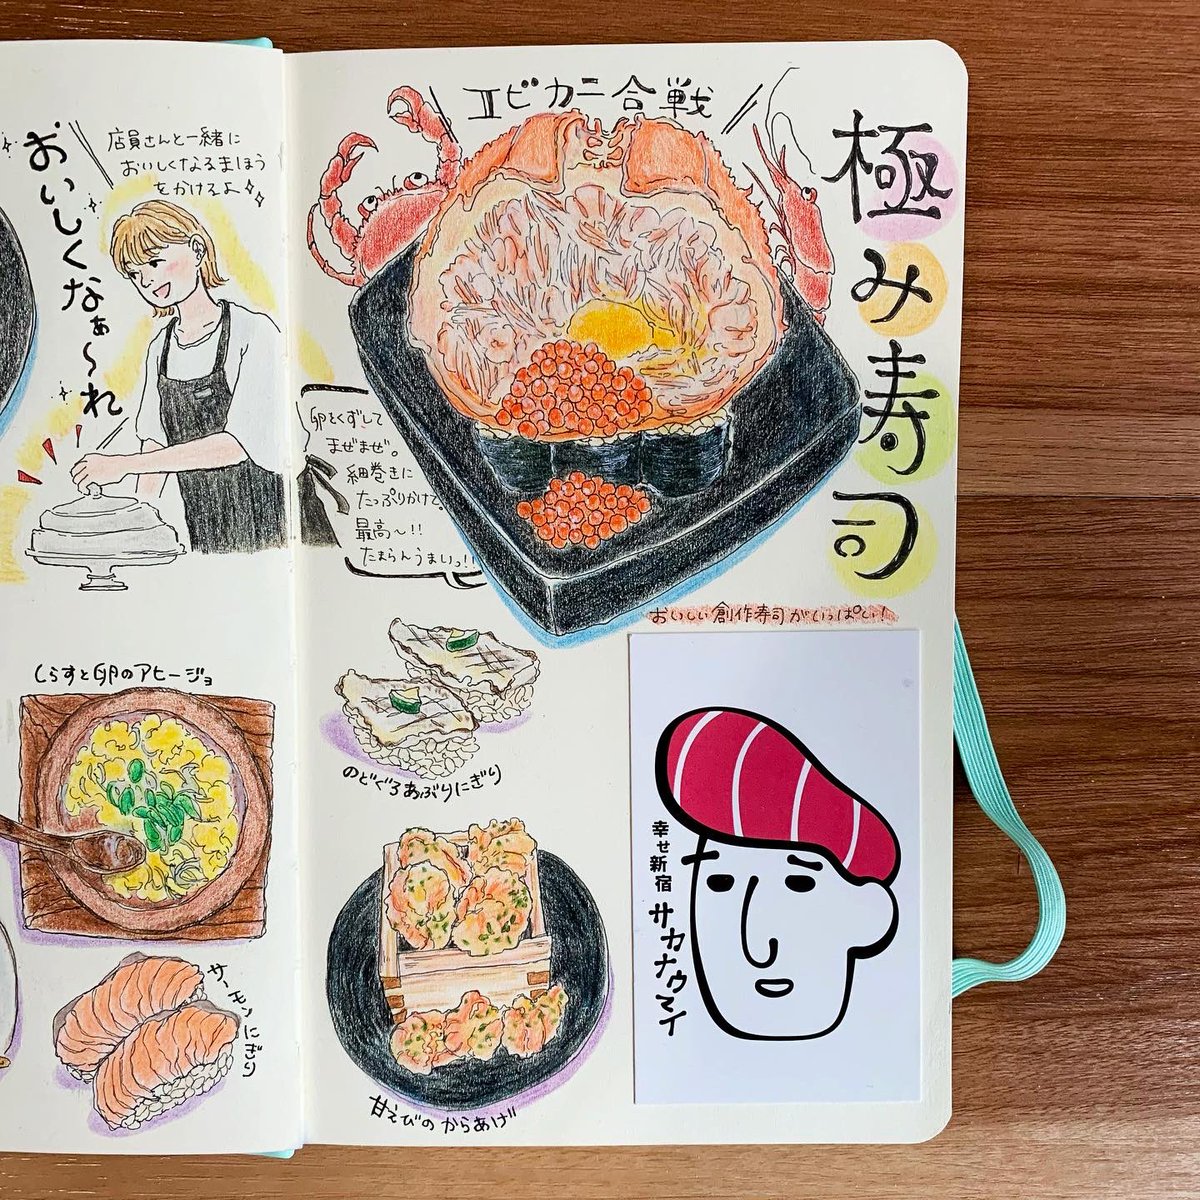 店員さんと一緒に
おいしくなるまほう
をかけるよ
おいしくなぁ〜れ
しらすと卵のアヒージョ
サーモンにぎり
エビカニ合戦
極み寿司
卵をくずして
まぜまぜ。
細巻きに
たっぷりかけて。
最高〜!!
たまらんうまいっ!!
おいしい創作寿司がいっぱい!
のどぐろあぶりにぎり
甘えびのからあげ
幸せ新宿
サカナウマイ